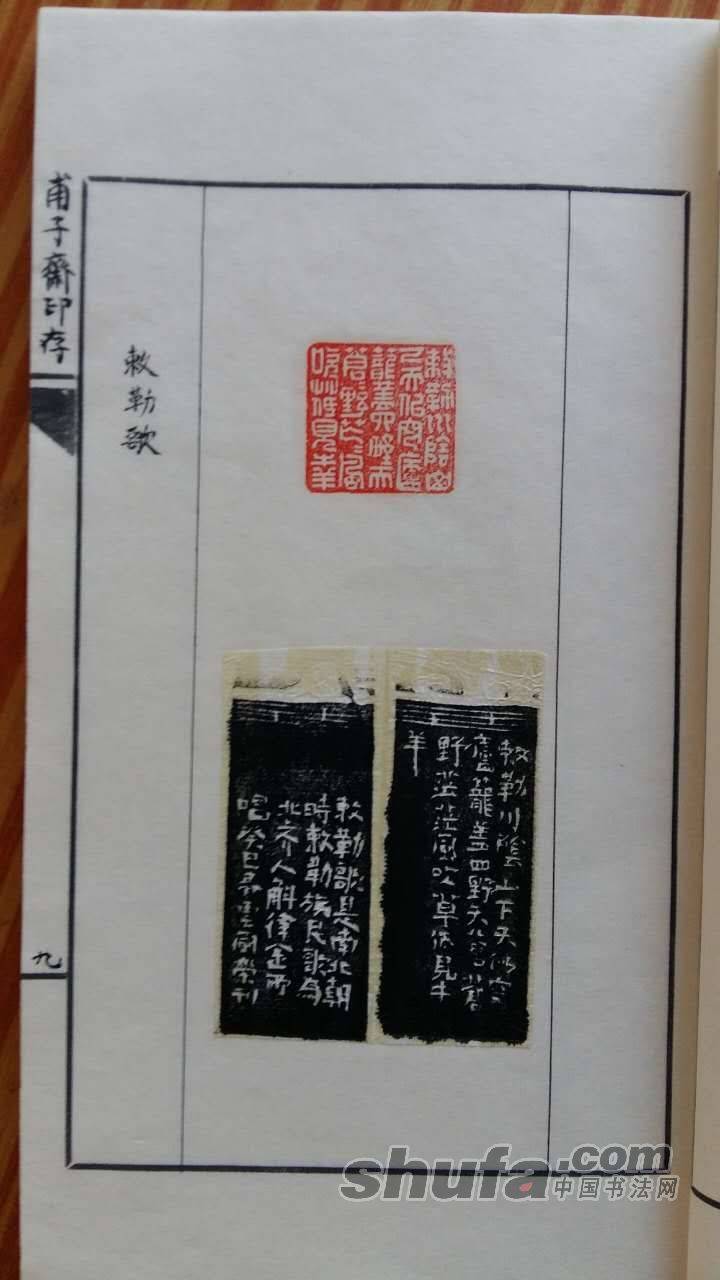 甫子齋印存
九
敕勒歌
敕勒川陰山
下天佀穹廬
籠蓋四野天
蒼野茫風
吹草低見牛羊
敕勒川陰山下天似穹
廬籠蓋四野天蒼蒼
野茫茫風吹草低見牛
羊
敕勒歌是南北朝
時敕勒族民歌為
北齊人斛律金所
唱癸巳國榮刊
shufa.com
中国书法网